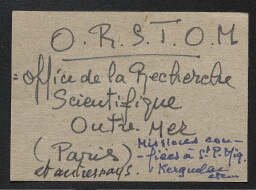 O.R.S.T.O.M
= Office de la Recherche
Scientifique
Outre Mer
(Paris)
et annexes
Missions con-
fiées à St P. Miq.
Kerguelen